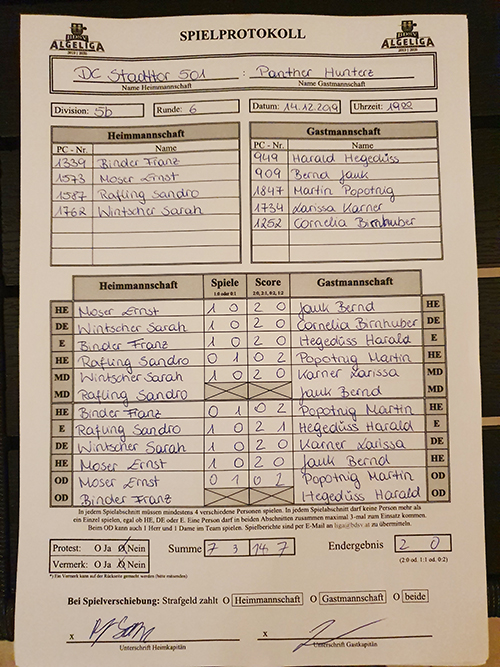 ALGELIGA SPIELPROTOKOLL ALGELIGA
DC Stadttor 501 : Panther Hunterz
Name Heimmannschaft Name Gastmannschaft
Division: 5b Runde: 6 Datum: 14.12.2019 Uhrzeit: 1900
Heimmannschaft Gastmannschaft
PC - Nr. Name PC - Nr. Name
1339 Binder Franz 949 Harald Hegedüss
1573 Moser Ernst 909 Bernd Jauk
1587 Rafling Sandro 1847 Martin Popotnig
1762 Wintscher Sarah 1734 Larissa Karner
1252 Cornelia Birnhuber
Heimmannschaft Spiele Score Gastmannschaft
1:0 oder 0:1 2:0, 2:1, 0:2, 1:2
HE Moser Ernst 1 0 2 0 Jauk Bernd HE
DE Wintscher Sarah 1 0 2 0 Cornelia Birnhuber DE
E Binder Franz 1 0 2 0 Hegedüss Harald E
HE Rafling Sandro 0 1 0 2 Popotnig Martin HE
MD Wintscher Sarah 1 0 2 0 Karner Larissa MD
MD Rafling Sandro Jauk Bernd MD
HE Binder Franz 0 1 0 2 Popotnig Martin HE
E Rafling Sandro 1 0 2 1 Hegedüss Harald E
DE Wintscher Sarah 1 0 2 0 Karner Larissa DE
HE Moser Ernst 1 0 2 0 Jauk Bernd HE
OD Moser Ernst 0 1 0 2 Popotnig Martin OD
OD Binder Franz Hegedüss Harald OD
In jedem Spielabschnitt müssen mindestens 4 verschiedene Personen spielen. In jedem Spielabschnitt darf keine Person mehr als
ein Einzel spielen, egal ob HE, DE oder E. Eine Person darf in beiden Abschnitten zusammen maximal 3-mal zum Einsatz kommen.
Beim OD kann auch 1 Herr und 1 Dame im Team spielen. Spielberichte sind per E-Mail an liga@bdsv.at zu übermitteln.
Protest: O Ja O Nein Summe 7 3 14 7 Endergebnis 2 0
Vermerk: O Ja O Nein (2:0 od. 1:1 od. 0:2)
*) Ein Vermerk kann auf der Rückseite gemacht werden (bitte ankreuzen)
Bei Spielverschiebung: Strafgeld zahlt O Heimmannschaft O Gastmannschaft O beide
x x
Unterschrift Heimkapitän Unterschrift Gastkapitän